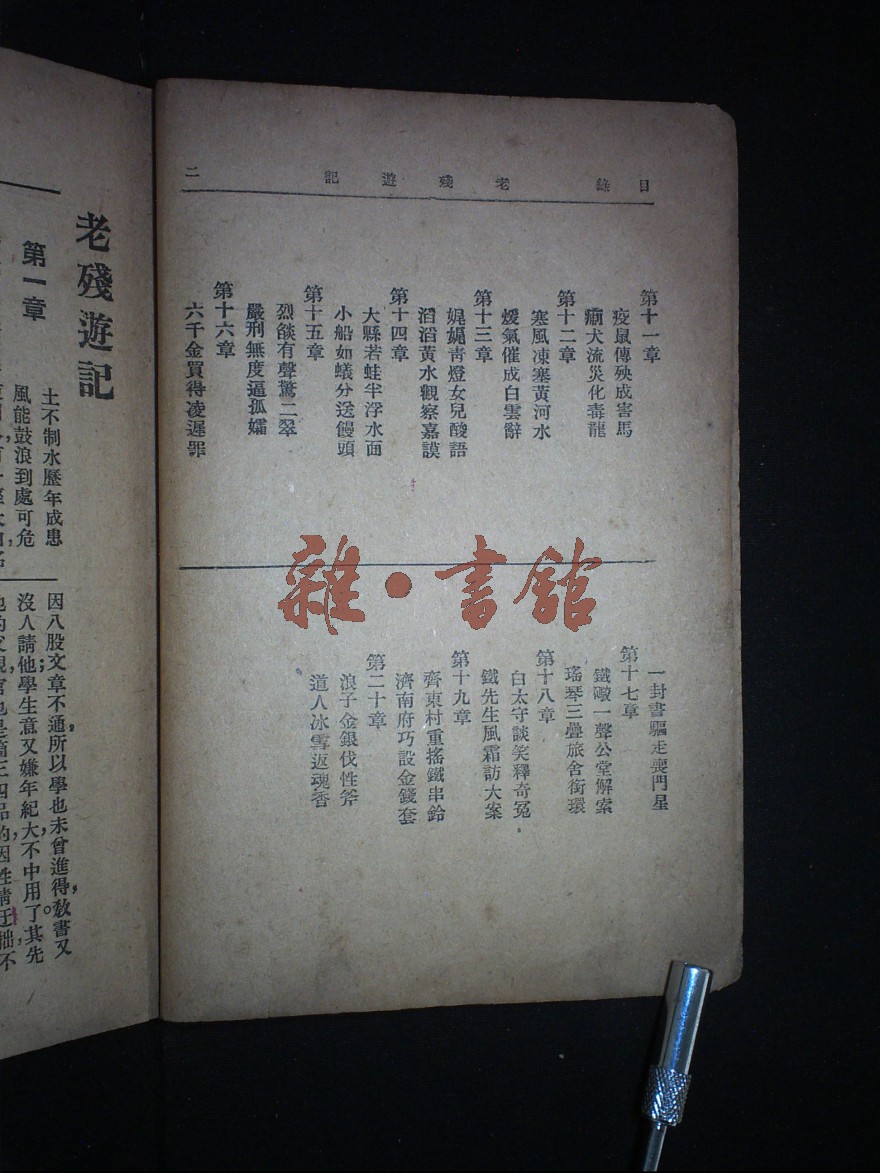 目錄　老殘遊記　二
第十一章
疫鼠傳殃成害馬
瘸犬流災化毒龍
第十二章
寒風凍塞黃河水
煖氣催成白雲辭
第十三章
娓娓青燈女兒酸語
滔滔黃水觀察嘉謨
第十四章
大縣若蛙半浮水面
小船如蟻分送饅頭
第十五章
烈燄有聲驚二翠
嚴刑無度逼孤孀
第十六章
六千金買得凌遲罪
一封書驅走喪門星
第十七章
鐵礮一聲公堂解索
瑤琴三疊旅舍銜環
第十八章
白太守談笑釋奇冤
鐵先生風霜訪大案
第十九章
齊東村重搖鐵串鈴
濟南府巧設金錢套
第二十章
浪子金銀伐性斧
道人冰雪返魂香
雜·書館
老殘遊記
第一章
土不制水歷年成患
風能鼓浪到處可危
因八股文章不通，所以學也未曾進得，敎書又
沒人請他；學生意又嫌年紀大，不中用了。其先